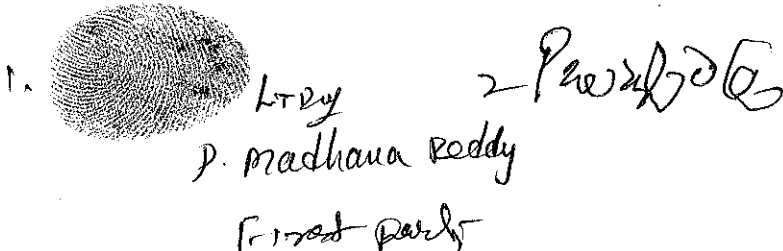 1. LTI of 2
P. Madhana Reddy
First party